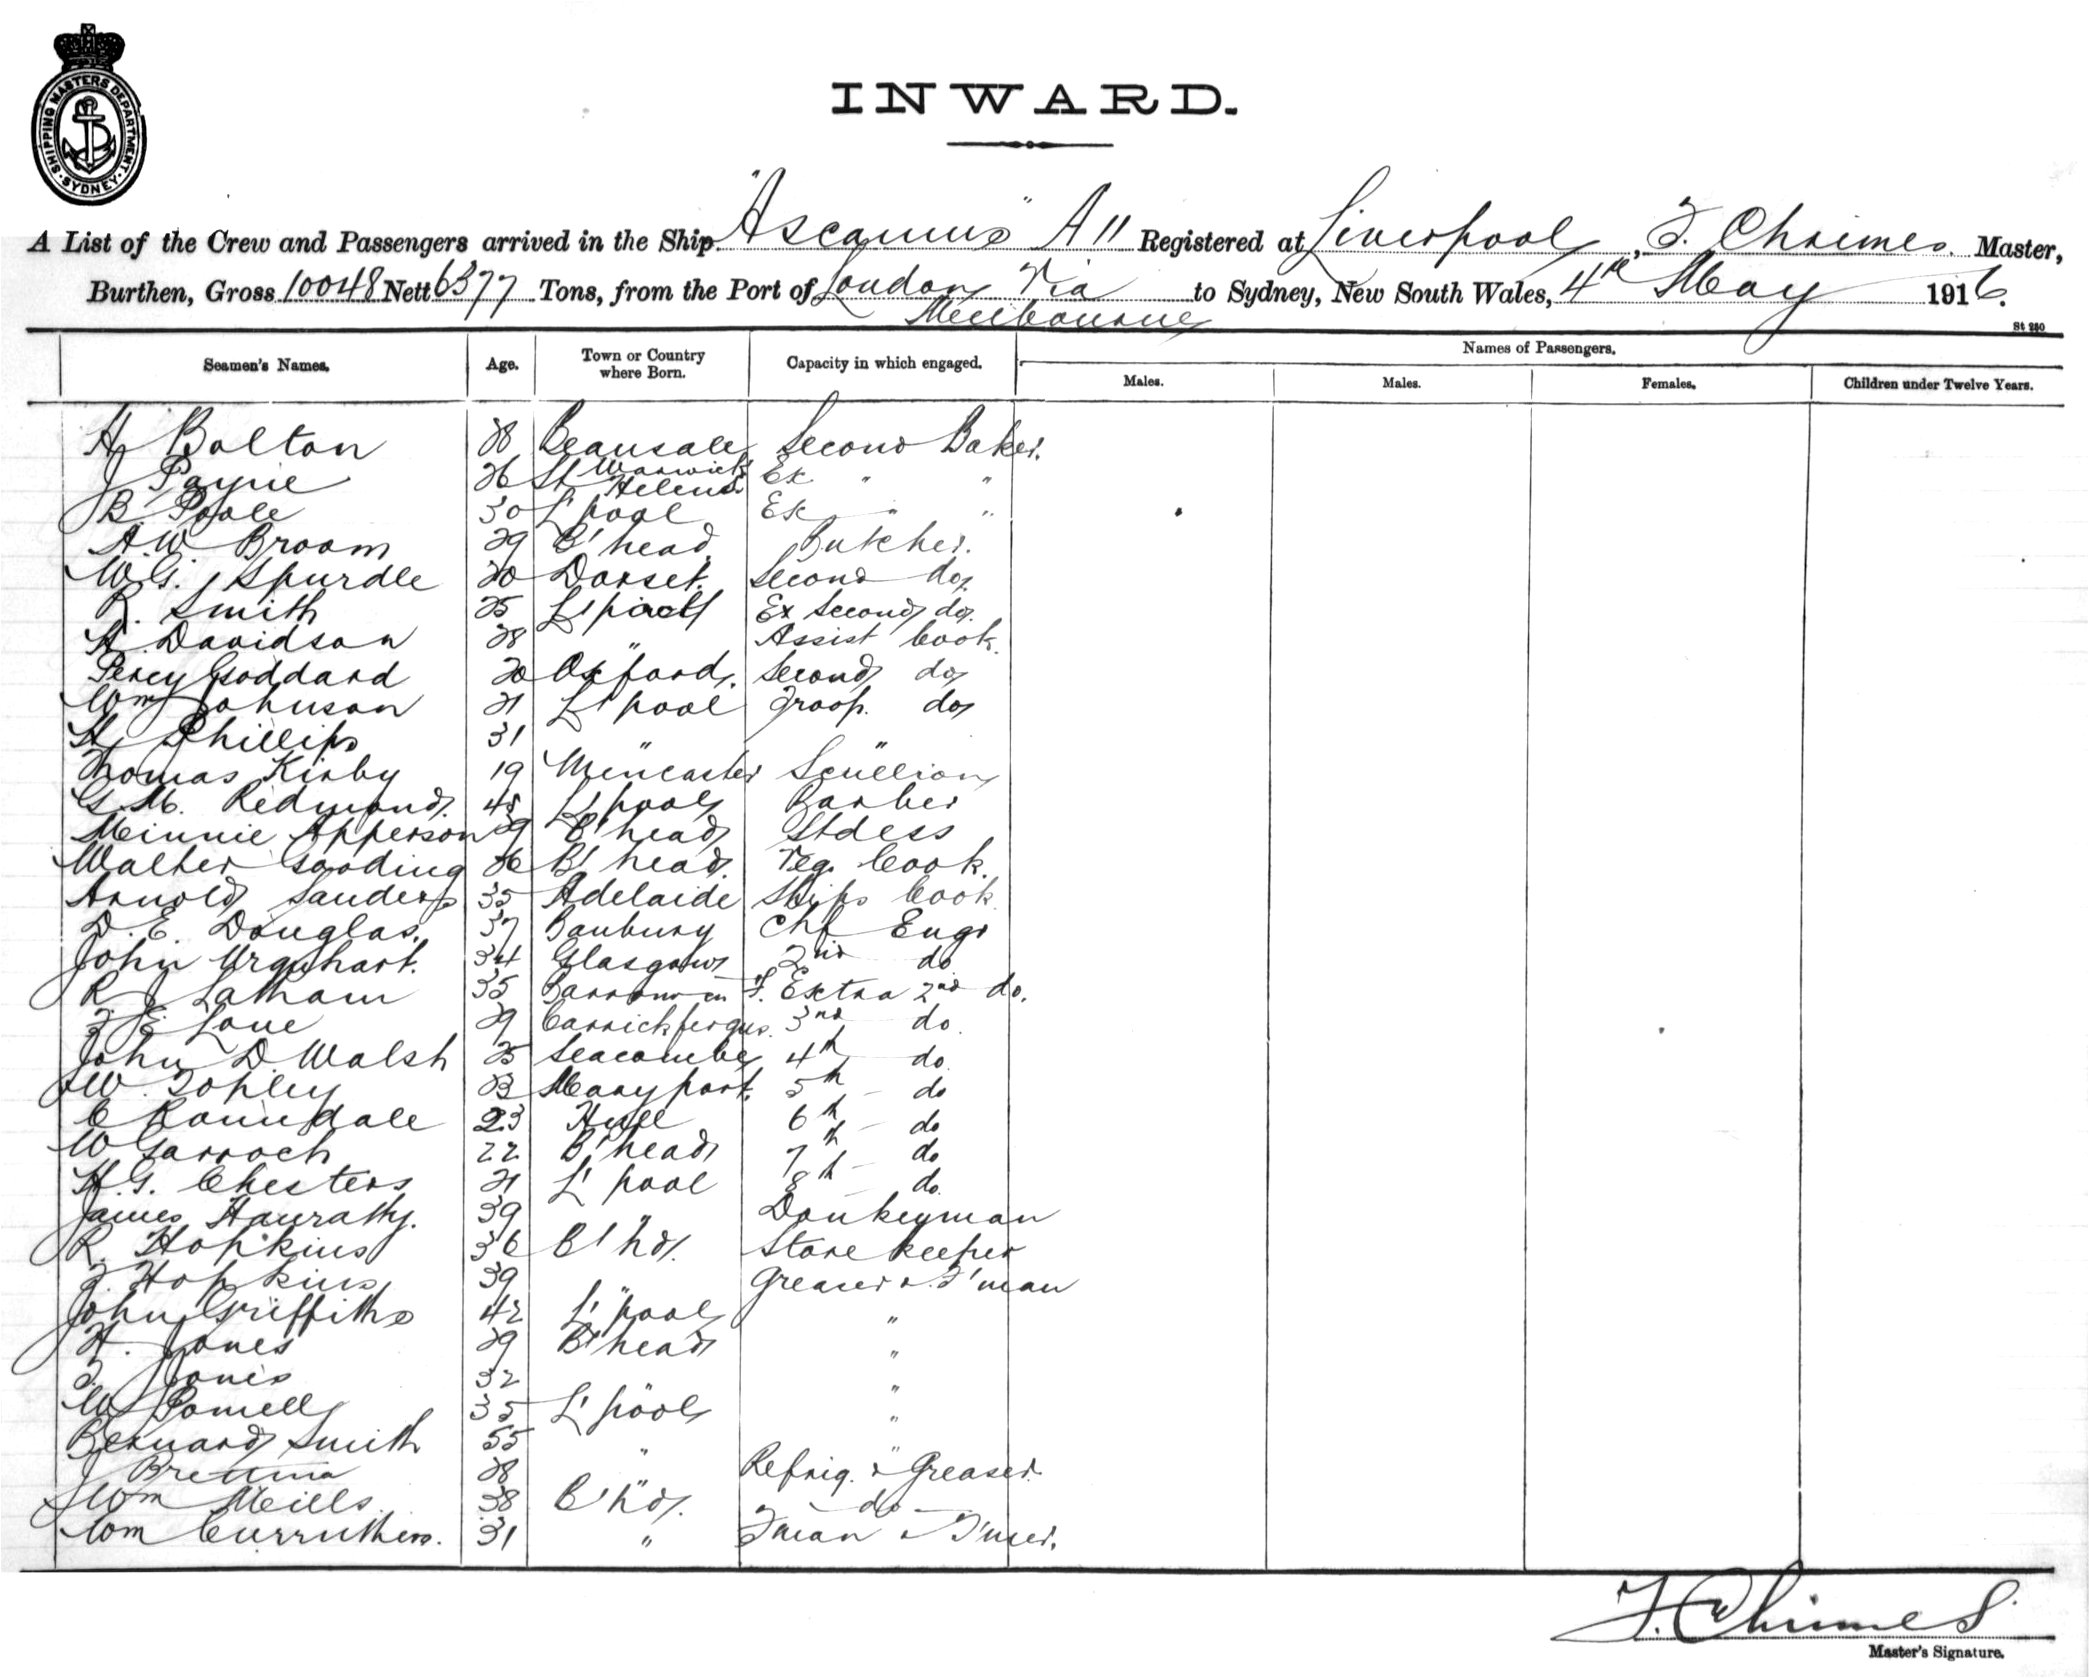 SHIPPING MASTERS DEPARTMENT · SYDNEY ·
INWARD.
A List of the Crew and Passengers arrived in the Ship "Ascanius" A11 Registered at Liverpool, F. Chrimes. Master,
Burthen, Gross 10048 Nett 6377 Tons, from the Port of London Via Melbourne to Sydney, New South Wales, 4th May 1916.
St 250
Seamen's Names. Age. Town or Country where Born. Capacity in which engaged. Names of Passengers.
Males. Males. Females. Children under Twelve Years.
H Bolton 28 Beausale Warwick Second Baker.
J Payne 26 St Helens Ex " "
B Poole 30 L'pool Ex " "
A.W Broom 29 B'head. Butcher.
W.G. Spurdle 20 Dorset. Second do
R. Smith 25 L'pool Ex Second do.
H Davidson 28 " Assist Cook.
Percy Goddard 20 Oxford. Second do
Wm Johnson 21 L'pool Troop. do
H Phillips 31 " "
Thomas Kirby 19 Scullion
G.M. Redmond. 48 L'pool Barber
Minnie Apperson 39 B'head Stdess
Walter Gooding 26 B'head. Veg. Cook.
Arnold Sanders 35 Adelaide Ships Cook.
D.E. Douglas. 37 Banbury Chf Engr
John Urquhart. 34 Glasgow 2nd do
R J Latham 35 Barrow in F. Extra 2nd do.
F E Lowe 29 Carrickfergus. 3rd do.
John D Walsh 25 Seacombe 4th do.
W. Topley 23 Maryport. 5th - do
C Rounsdale 23 Hull 6th - do
W Garroch 22 B'head 7th - do
H.G. Chesters 21 L'pool 8th do.
James Hanratty. 39 " Donkeyman
R. Hopkins 36 B'hd. Storekeeper
F. Hopkins 39 " Greaser & F'man
John Griffiths 42 L'pool "
H. Jones 29 B'head "
F. Jones 32 " "
W Powell 35 L'pool "
Bernard Smith 55 " "
J 28 " Refrig. & Greaser.
Wm Meills. 38 B'hd. - do -
Wm Curruthers. 31 " F'man & T'mer.
F. Chrimes
Master's Signature.